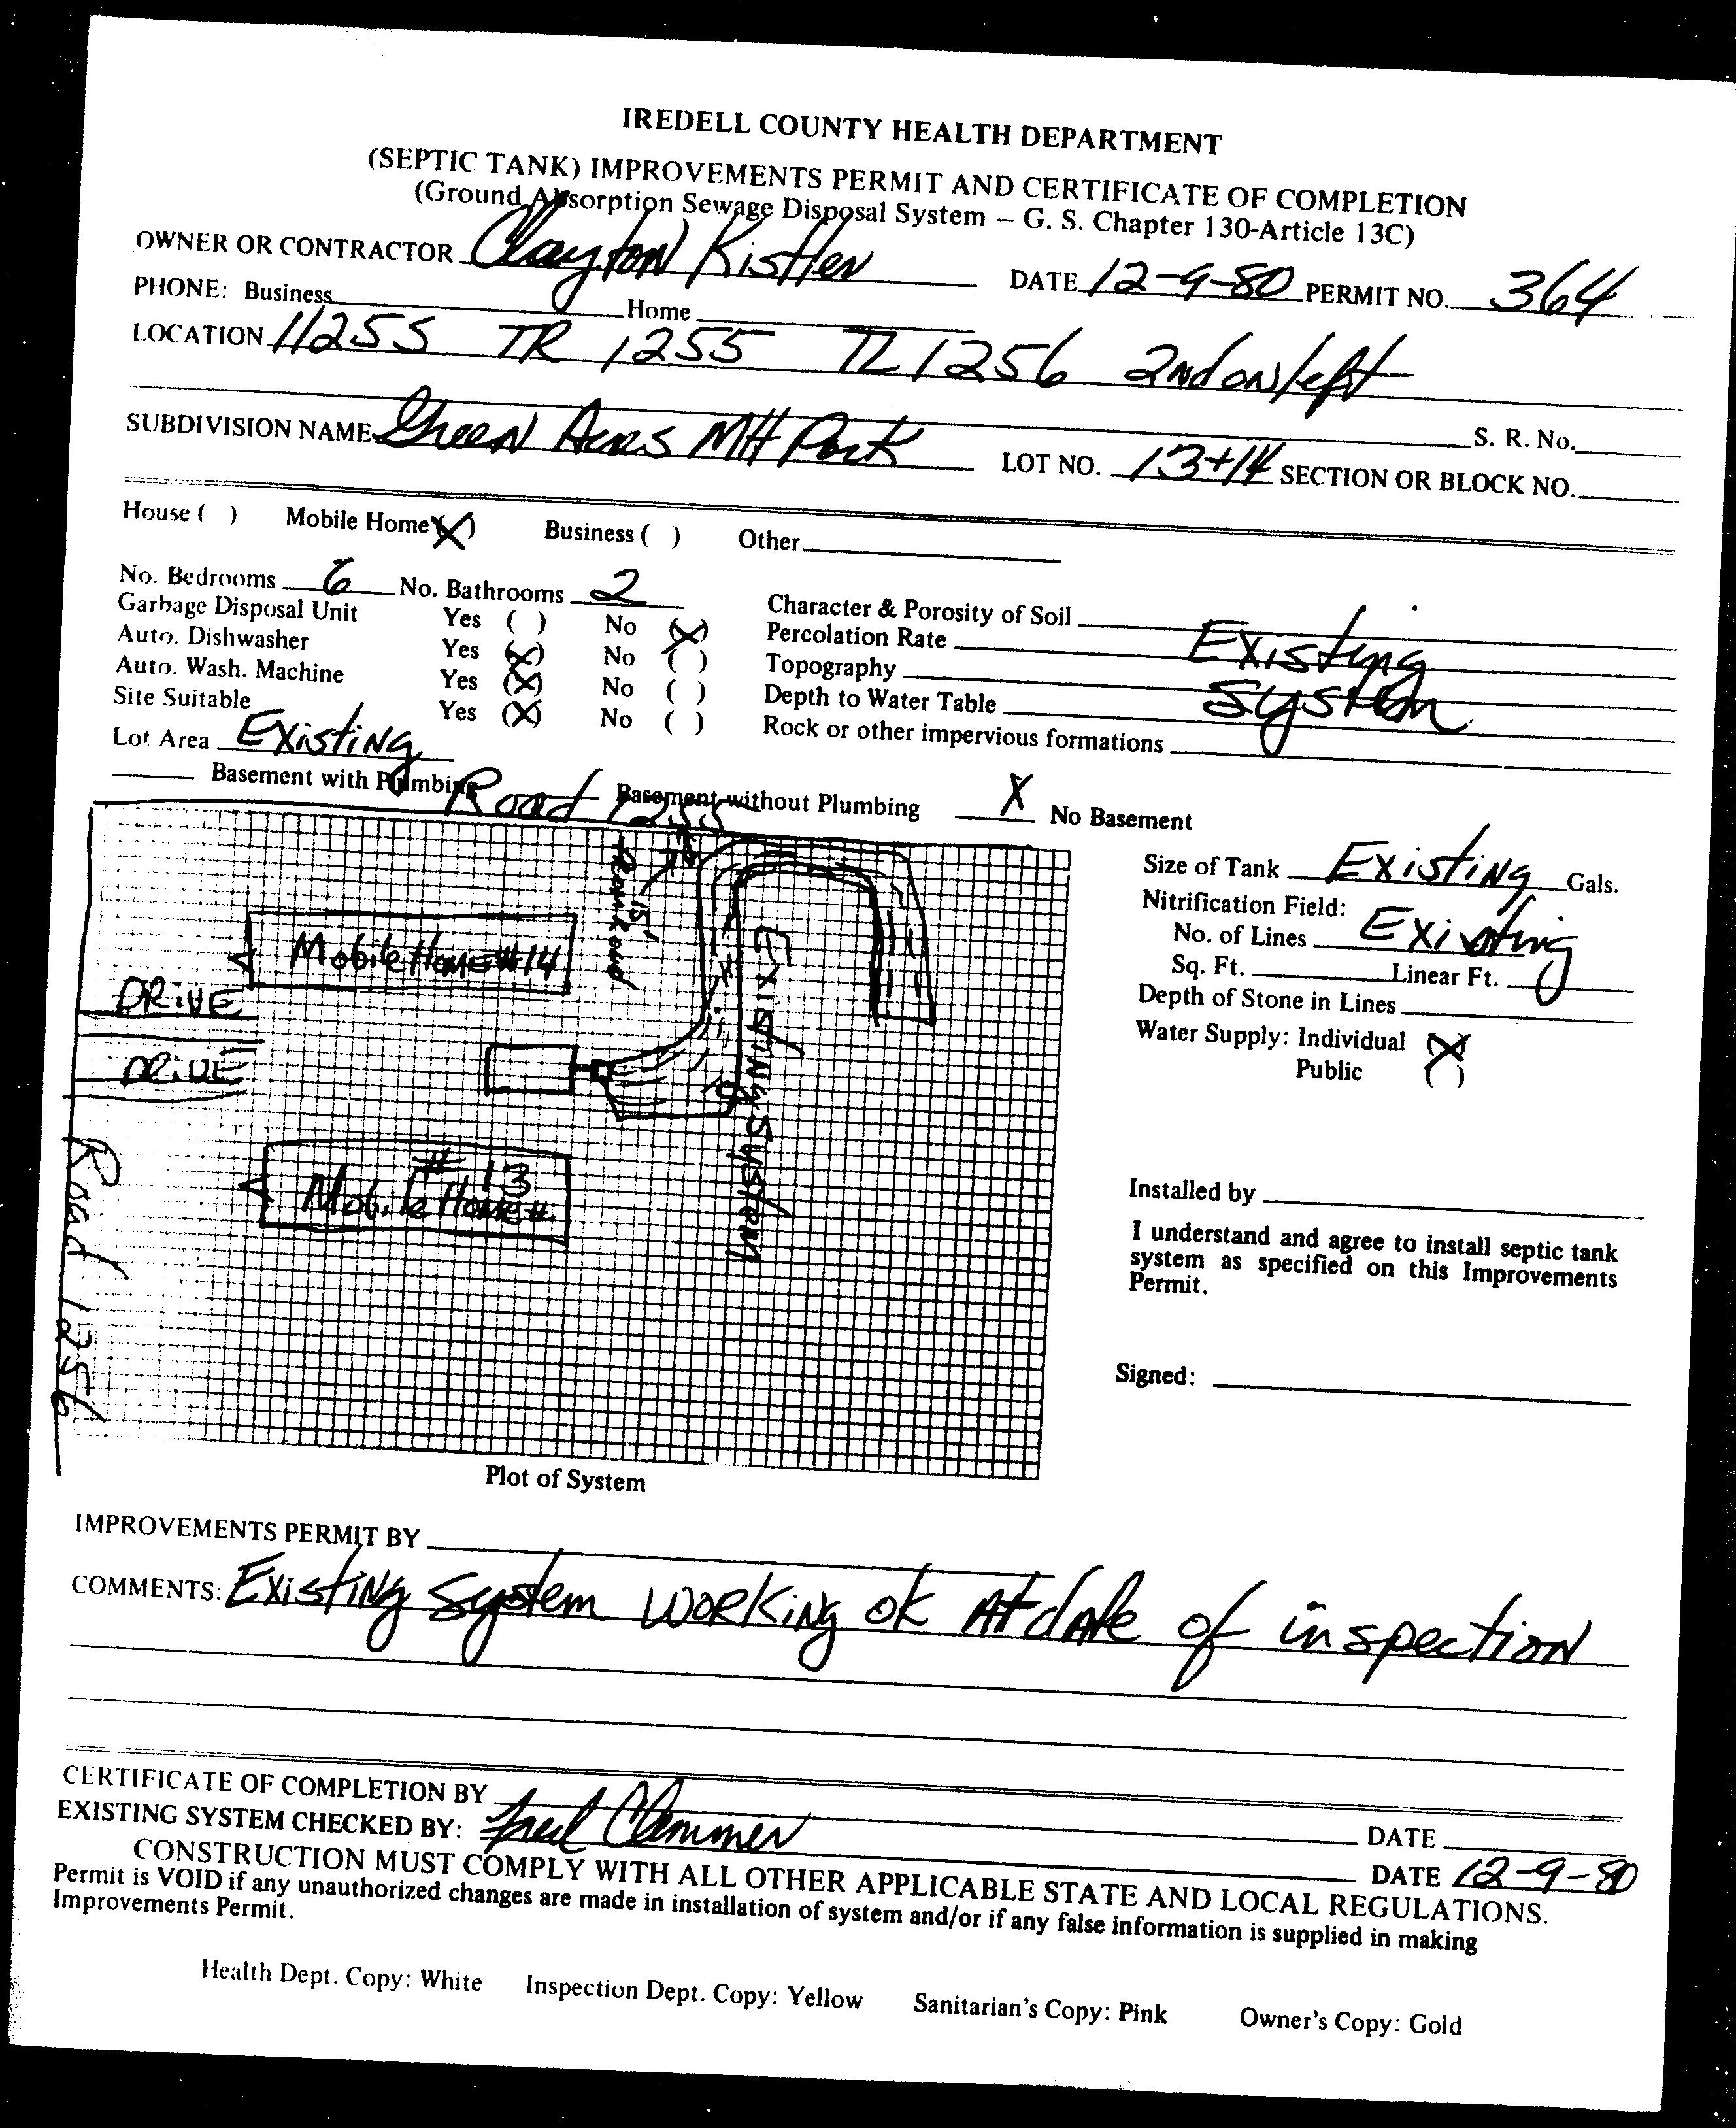 IREDELL COUNTY HEALTH DEPARTMENT
(SEPTIC TANK) IMPROVEMENTS PERMIT AND CERTIFICATE OF COMPLETION
(Ground Absorption Sewage Disposal System — G. S. Chapter 130-Article 13C)
OWNER OR CONTRACTOR Clayton Kistler DATE 12-9-80 PERMIT NO. 364
PHONE: Business Home
LOCATION 1125S TR 1255 TL 1256 2nd on left
S. R. No.
SUBDIVISION NAME Green Acres MH Park LOT NO. 13+14 SECTION OR BLOCK NO.
House ( ) Mobile Home (X) Business ( ) Other
No. Bedrooms 6 No. Bathrooms 2
Garbage Disposal Unit Yes ( ) No (X) Character & Porosity of Soil
Auto. Dishwasher Yes (X) No ( ) Percolation Rate Existing
Auto. Wash. Machine Yes (X) No ( ) Topography System
Site Suitable Yes (X) No ( ) Depth to Water Table
Lot Area Existing Rock or other impervious formations
Basement with Plumbing Basement without Plumbing X No Basement
Road 1255
15'
Mobile Home #14
DRIVE
DRIVE
Existing System
# 13
Mobile Home #
Road 1256
Plot of System
Size of Tank Existing Gals.
Nitrification Field:
No. of Lines Existing
Sq. Ft. Linear Ft.
Depth of Stone in Lines
Water Supply: Individual (X)
Public ( )
Installed by
I understand and agree to install septic tank
system as specified on this Improvements
Permit.
Signed:
IMPROVEMENTS PERMIT BY
COMMENTS: Existing System working ok At date of inspection
CERTIFICATE OF COMPLETION BY DATE
EXISTING SYSTEM CHECKED BY: Fred Clammer DATE 12-9-80
CONSTRUCTION MUST COMPLY WITH ALL OTHER APPLICABLE STATE AND LOCAL REGULATIONS.
Permit is VOID if any unauthorized changes are made in installation of system and/or if any false information is supplied in making
Improvements Permit.
Health Dept. Copy: White Inspection Dept. Copy: Yellow Sanitarian's Copy: Pink Owner's Copy: Gold